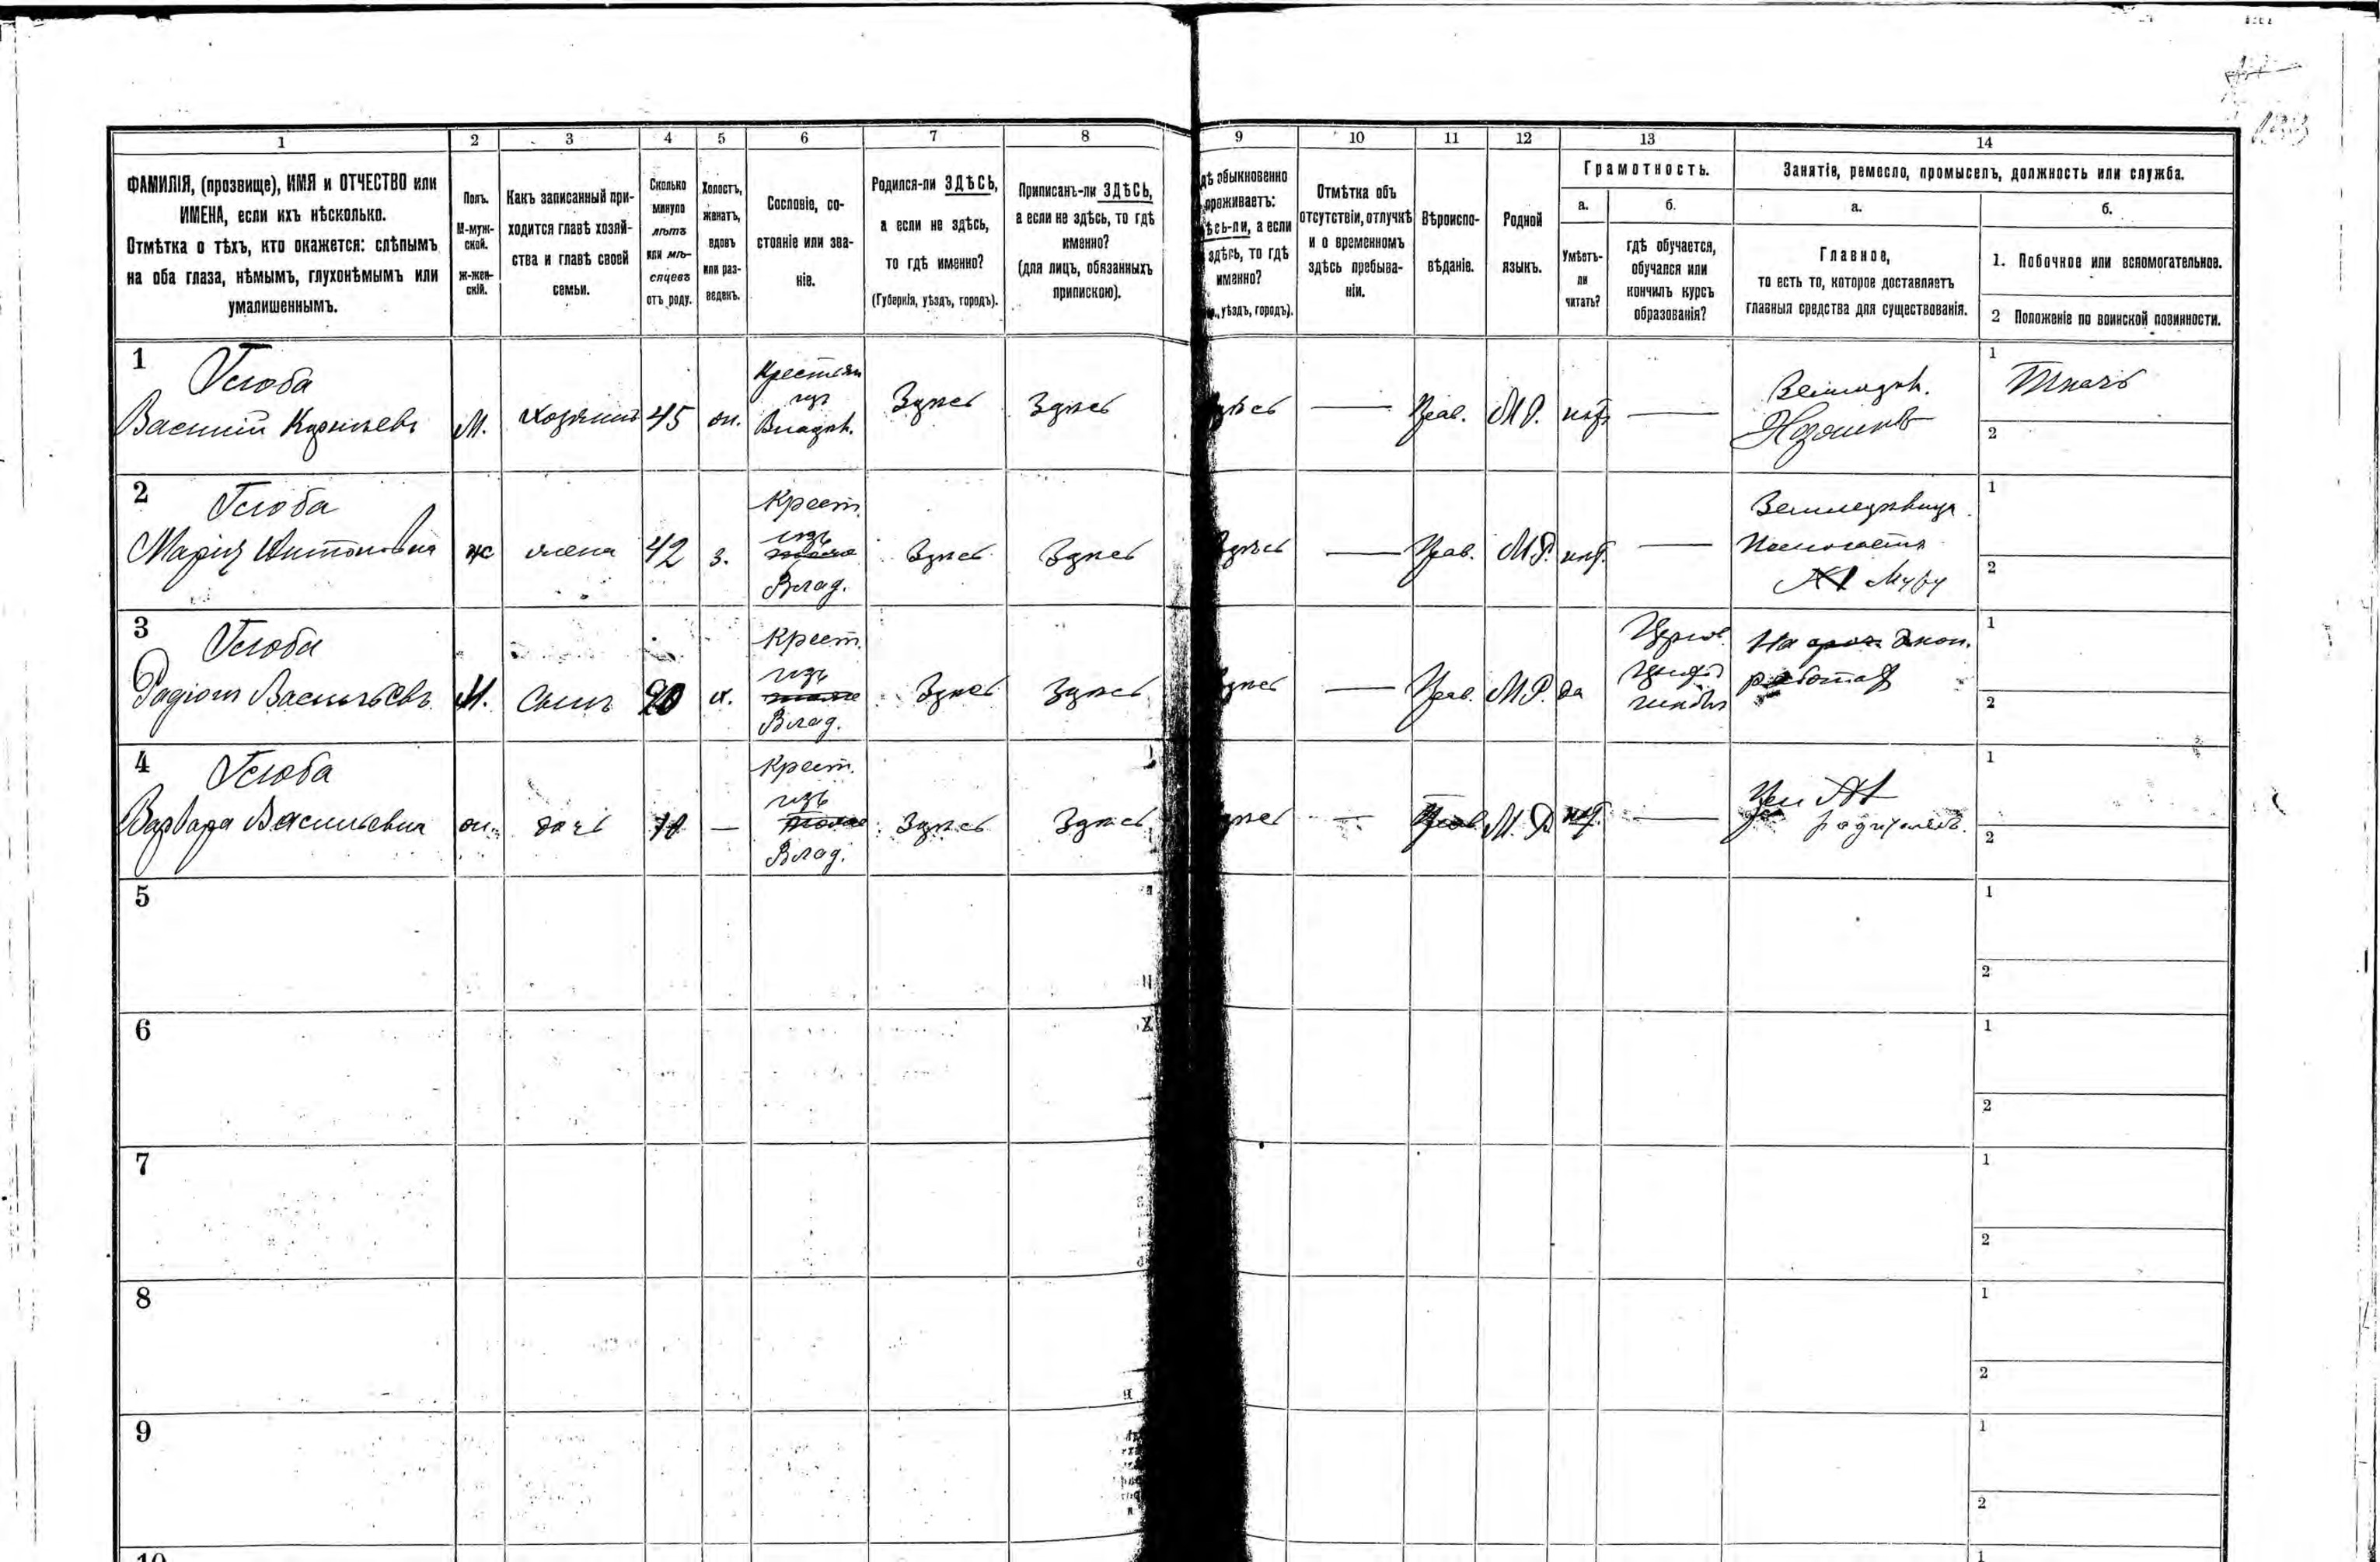 1 2 3 4 5 6 7 8 9 10 11 12 13 14
ФАМИЛІЯ, (прозвище), ИМЯ и ОТЧЕСТВО или
ИМЕНА, если ихъ нѣсколько.
Отмѣтка о тѣхъ, кто окажется: слѣпымъ
на оба глаза, нѣмымъ, глухонѣмымъ или
умалишеннымъ.
Полъ.
М-муж-
ской.
ж-жен-
скій.
Какъ записанный при-
ходится главѣ хозяй-
ства и главѣ своей
семьи.
Сколько
минуло
лѣтъ
или мѣ-
сяцевъ
отъ роду.
Холостъ,
женатъ,
вдовъ
или раз-
веденъ.
Сословіе, со-
стояніе или зва-
ніе.
Родился-ли ЗДѢСЬ,
а если не здѣсь,
то гдѣ именно?
(Губернія, уѣздъ, городъ).
Приписанъ-ли ЗДѢСЬ,
а если не здѣсь, то гдѣ
именно?
(для лицъ, обязанныхъ
припискою).
обыкновенно
проживаетъ:
а если
здѣсь, то гдѣ
именно?
уѣздъ, городъ).
Отмѣтка объ
отсутствіи, отлучкѣ
и о временномъ
здѣсь пребыва-
ніи.
Вѣроиспо-
вѣданіе.
Родной
языкъ.
Грамотность.
а.
Умѣетъ-
ли
читать?
б.
гдѣ обучается,
обучался или
кончилъ курсъ
образованія?
Занятіе, ремесло, промыселъ, должность или служба.
а.
Главное,
то есть то, которое доставляетъ
главныя средства для существованія.
б.
1. Побочное или вспомогательное.
2 Положеніе по воинской повинности.
1 Глоба
Крестьян
изъ
Владѣл.
Василій М. Хозяинъ 45 Здѣсь Здѣсь — Прав. М.Р. нѣт —
Хозяинъ
1 Ткачъ
2
2 Глоба
Крест.
изъ
Влад.
Марія Антоновна ж жена 42 з. Здѣсь Здѣсь Здѣсь — Прав. М.Р. нѣт —
1
2
3 Глоба
Крест.
изъ
Влад.
Радіонъ Васильевъ М. Сынъ 20 х. Здѣсь Здѣсь — Прав. М.Р. да
На экон.
работах
1
2
4 Глоба
Крест.
изъ
Влад.
Варвара Васильевна дочь 10 — Здѣсь Здѣсь — Прав. М.Р. нѣт. —
При
родителях.
1
2
5
1
2
6
1
2
7
1
2
8
1
2
9
1
2
10
1